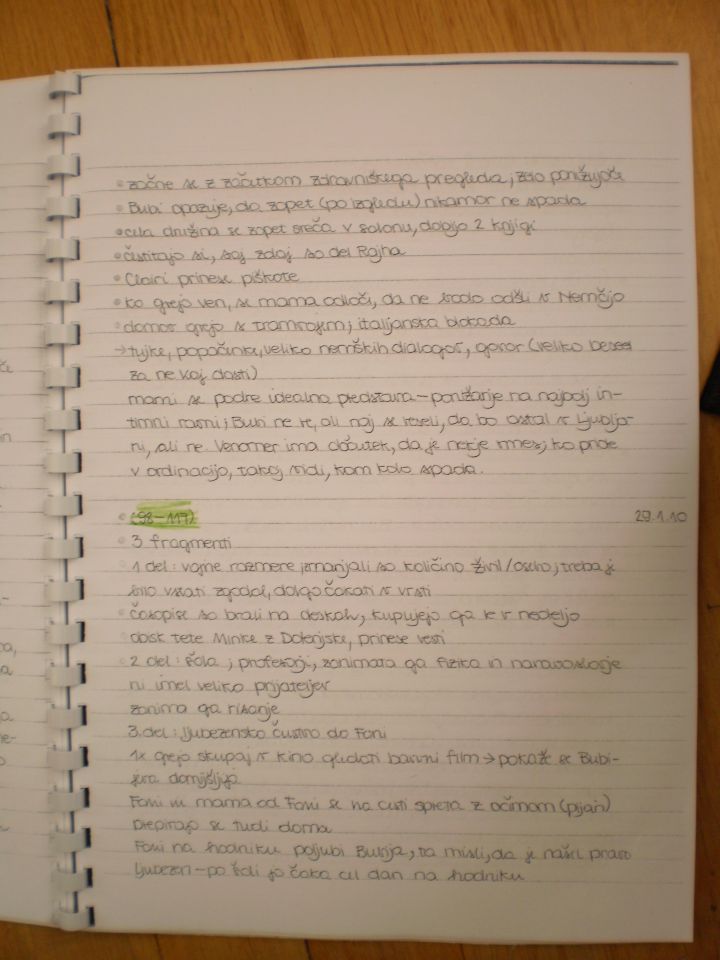 začne se z začetkom zdravniškega pregleda; zelo ponižujoče
Bubi opazuje, da zopet (po izgledu) nikamor ne spada
cela družina se zopet sreča v salonu, dobijo 2 knjigi
čestitajo si, saj zdaj so del Rajha
Clairi prinese piškote
ko grejo ven, se mama odloči, da ne bodo odšli v Nemčijo
domov grejo s tramvajem; italijanska blokada
→ tujke, popačenke, veliko nemških dialogov, govor (veliko besed
za ne kaj dosti)
mami se podre idealna predstava – ponižanje na najbolj in-
timni ravni; Bubi ne ve, ali naj se veseli, da bo ostal v Ljublja-
ni, ali ne. Venomer ima občutek, da je nekje vmes; ko pride
v ordinacijo, takoj vidi, kam kdo spada.
(98–117) 29.1.10
3 fragmenti
1 del: vojne razmere; zmanjšali so količino živil/osebo; treba je
bilo vstati zgodaj, dolgo čakati v vrsti
časopise so brali na deskah, kupujejo ga le v nedeljo
obisk tete Minke z Dolenjske, prinese vesti
2 del: šola; profesorji, zanimata ga fizika in naravoslovje
ni imel veliko prijateljev
zanima ga risanje
3. del: ljubezensko čustvo do Fani
1x grejo skupaj v kino gledati barvni film → pokaže se Bubi-
jeva domišljija
Fani in mama od Fani se na cesti spreta z očimom (pijan)
prepirajo se tudi doma
Fani na hodniku poljubi Bubija, ta misli, da je našel pravo
ljubezen – po šoli jo čaka cel dan na hodniku